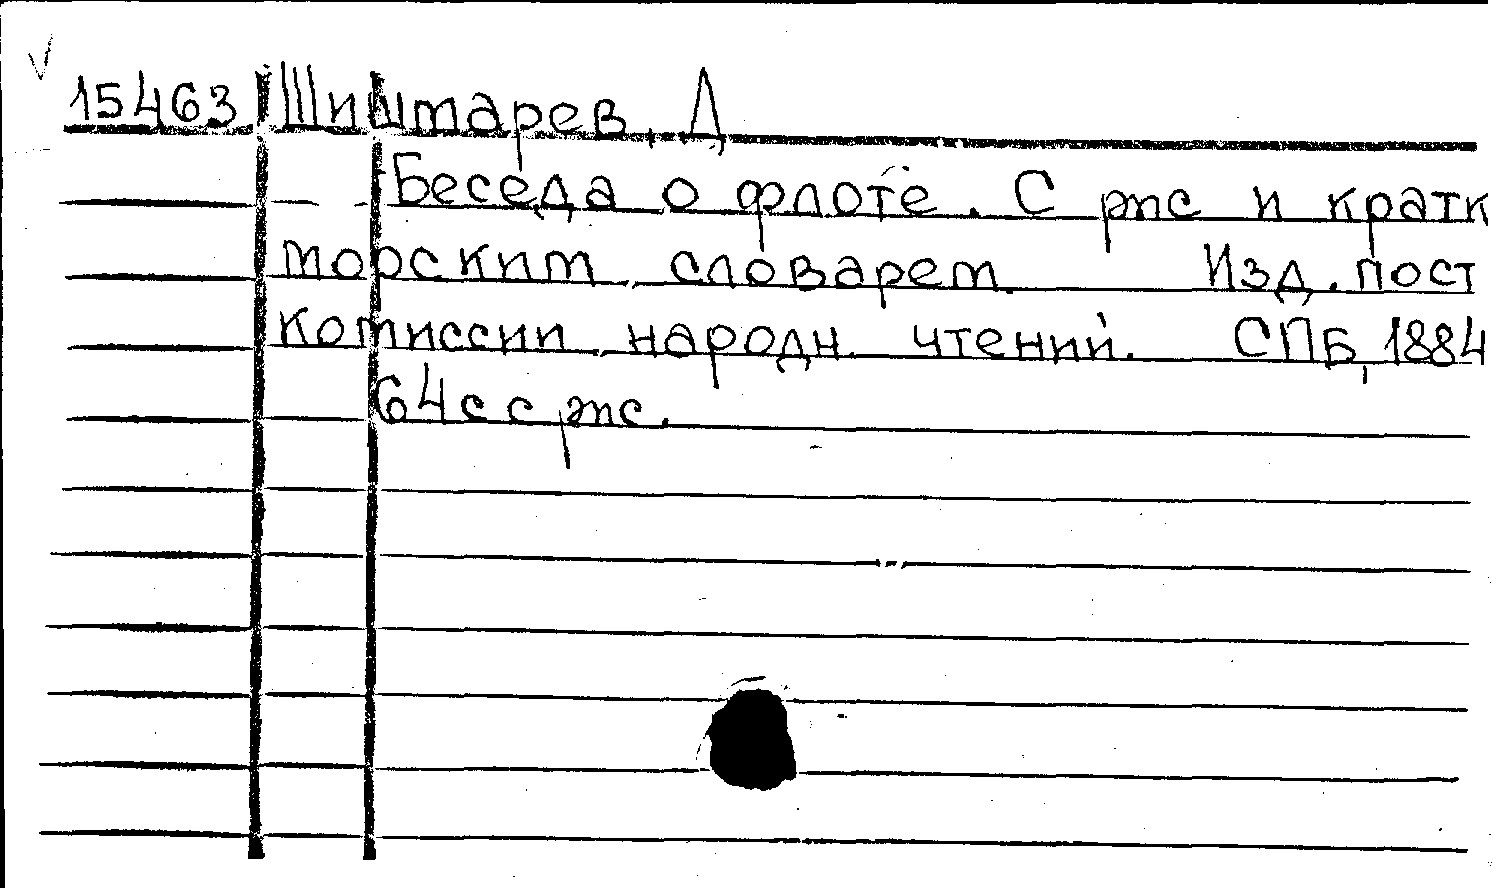 15463 Шиштарев, Д
Беседа о флоте. С рис и кратк
морским словарем. Изд. пост
комиссии народн. чтений. СПБ, 1884
64 с с рис.